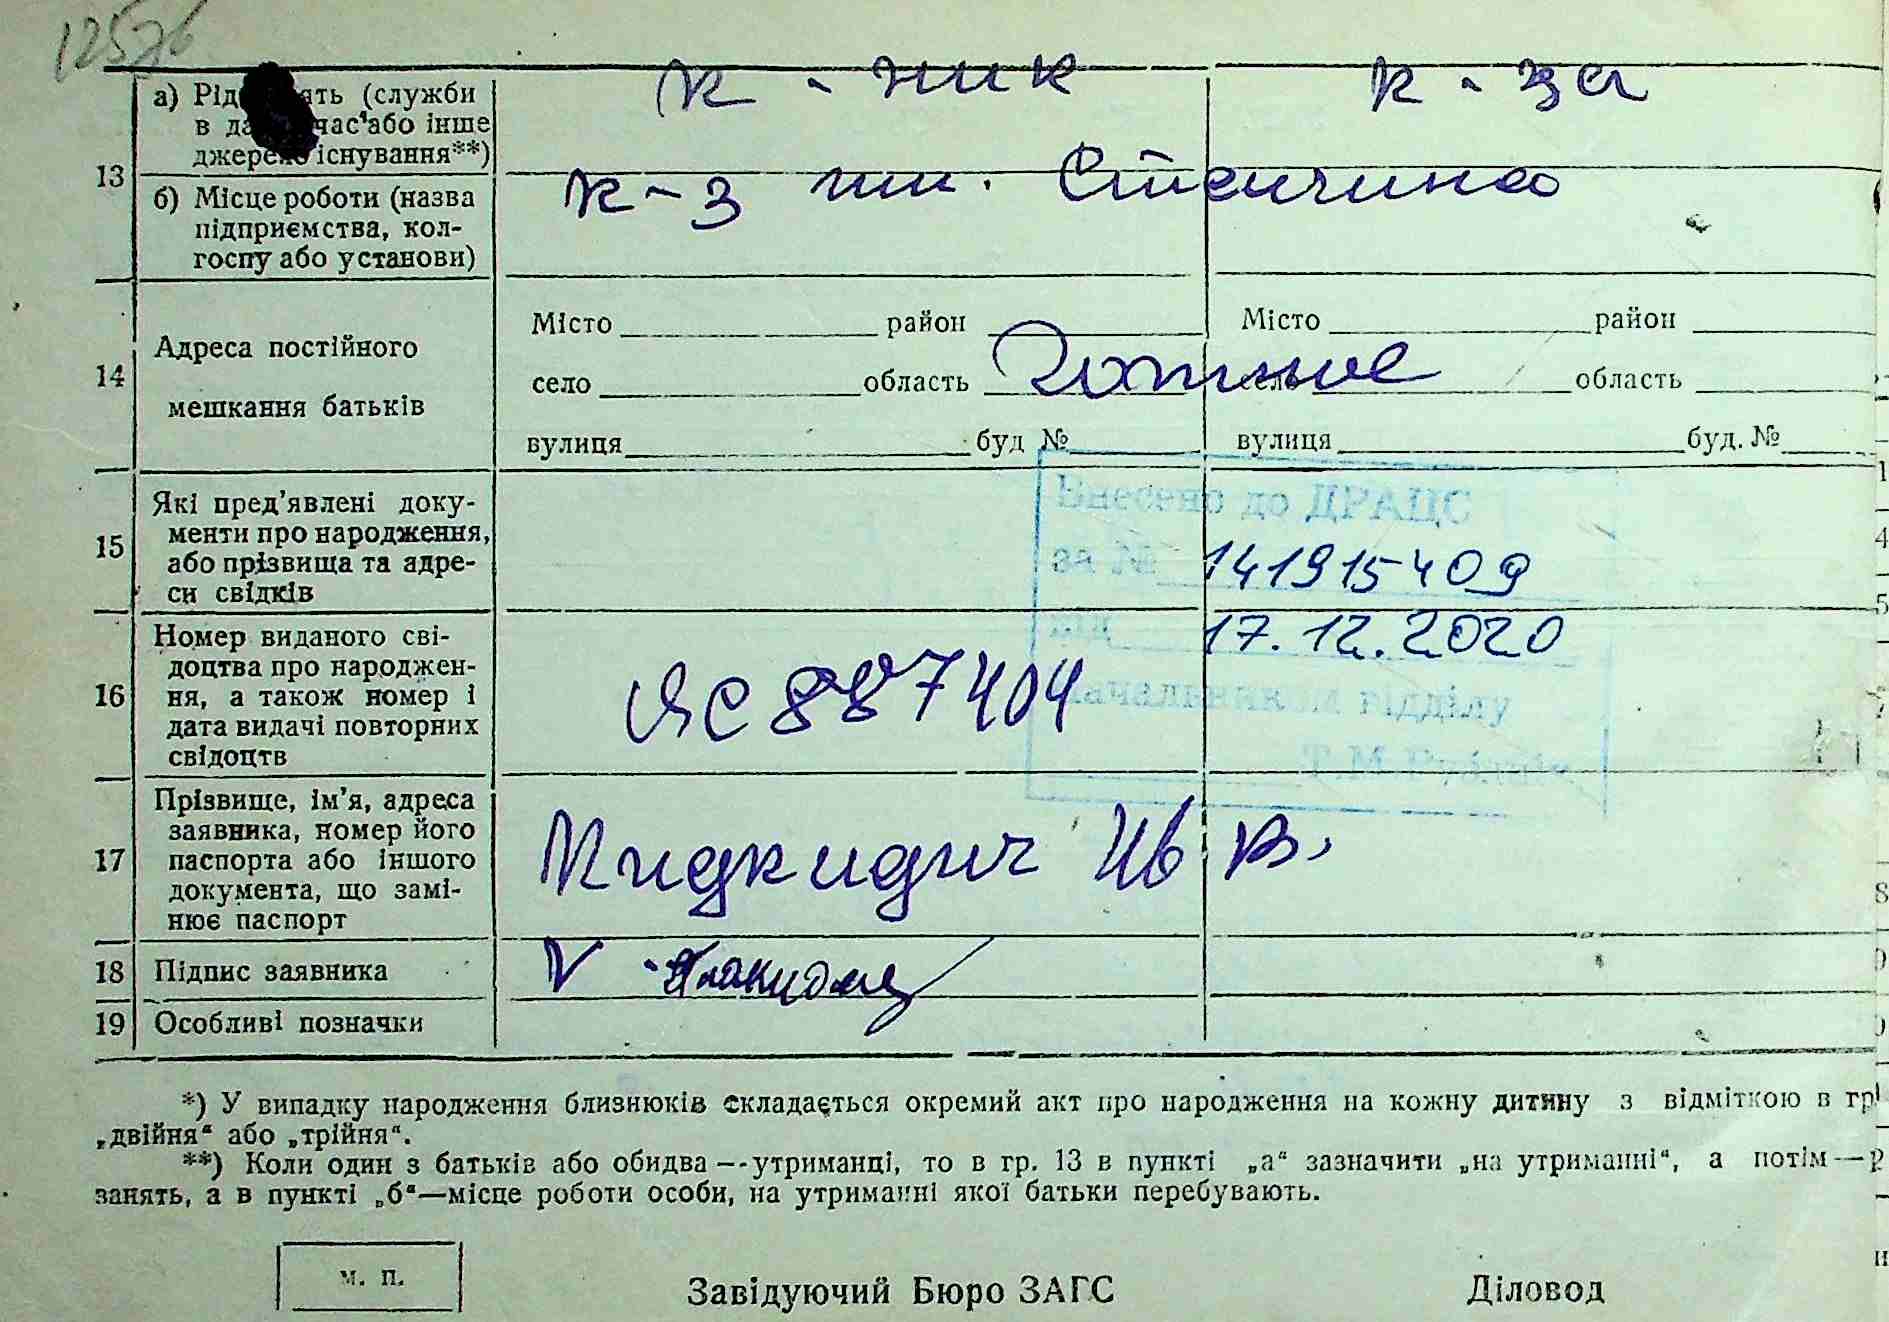 12576
а) Рід ять (служби к-ник к-за
в да час або інше
джерело існування**)
13
б) Місце роботи (назва к-з
підприємства, кол-
госпу або установи)
Місто район Місто район
14 Адреса постійного
мешкання батьків
село область село область
вулиця буд № вулиця буд. №
15 Які пред’явлені доку-
менти про народження,
або прізвища та адре-
си свідків
Внесено до ДРАЦС
за № 141915409
від 17.12.2020
Начальником відділу
Т.М.
16 Номер виданого сві-
доцтва про народжен-
ня, а також номер і
дата видачі повторних
свідоцтв
ЯС 887404
17 Прізвище, ім’я, адреса
заявника, номер його
паспорта або іншого
документа, що замі-
нює паспорт
Ив В.
18 Підпис заявника V
19 Особливі позначки
*) У випадку народження близнюків складається окремий акт про народження на кожну дитину з відміткою в гр
„двійня“ або „трійня“.
**) Коли один з батьків або обидва—утриманці, то в гр. 13 в пункті „а“ зазначити „на утриманні“, а потім—р
занять, а в пункті „б“—місце роботи особи, на утриманні якої батьки перебувають.
м. п.
Завідуючий Бюро ЗАГС Діловод